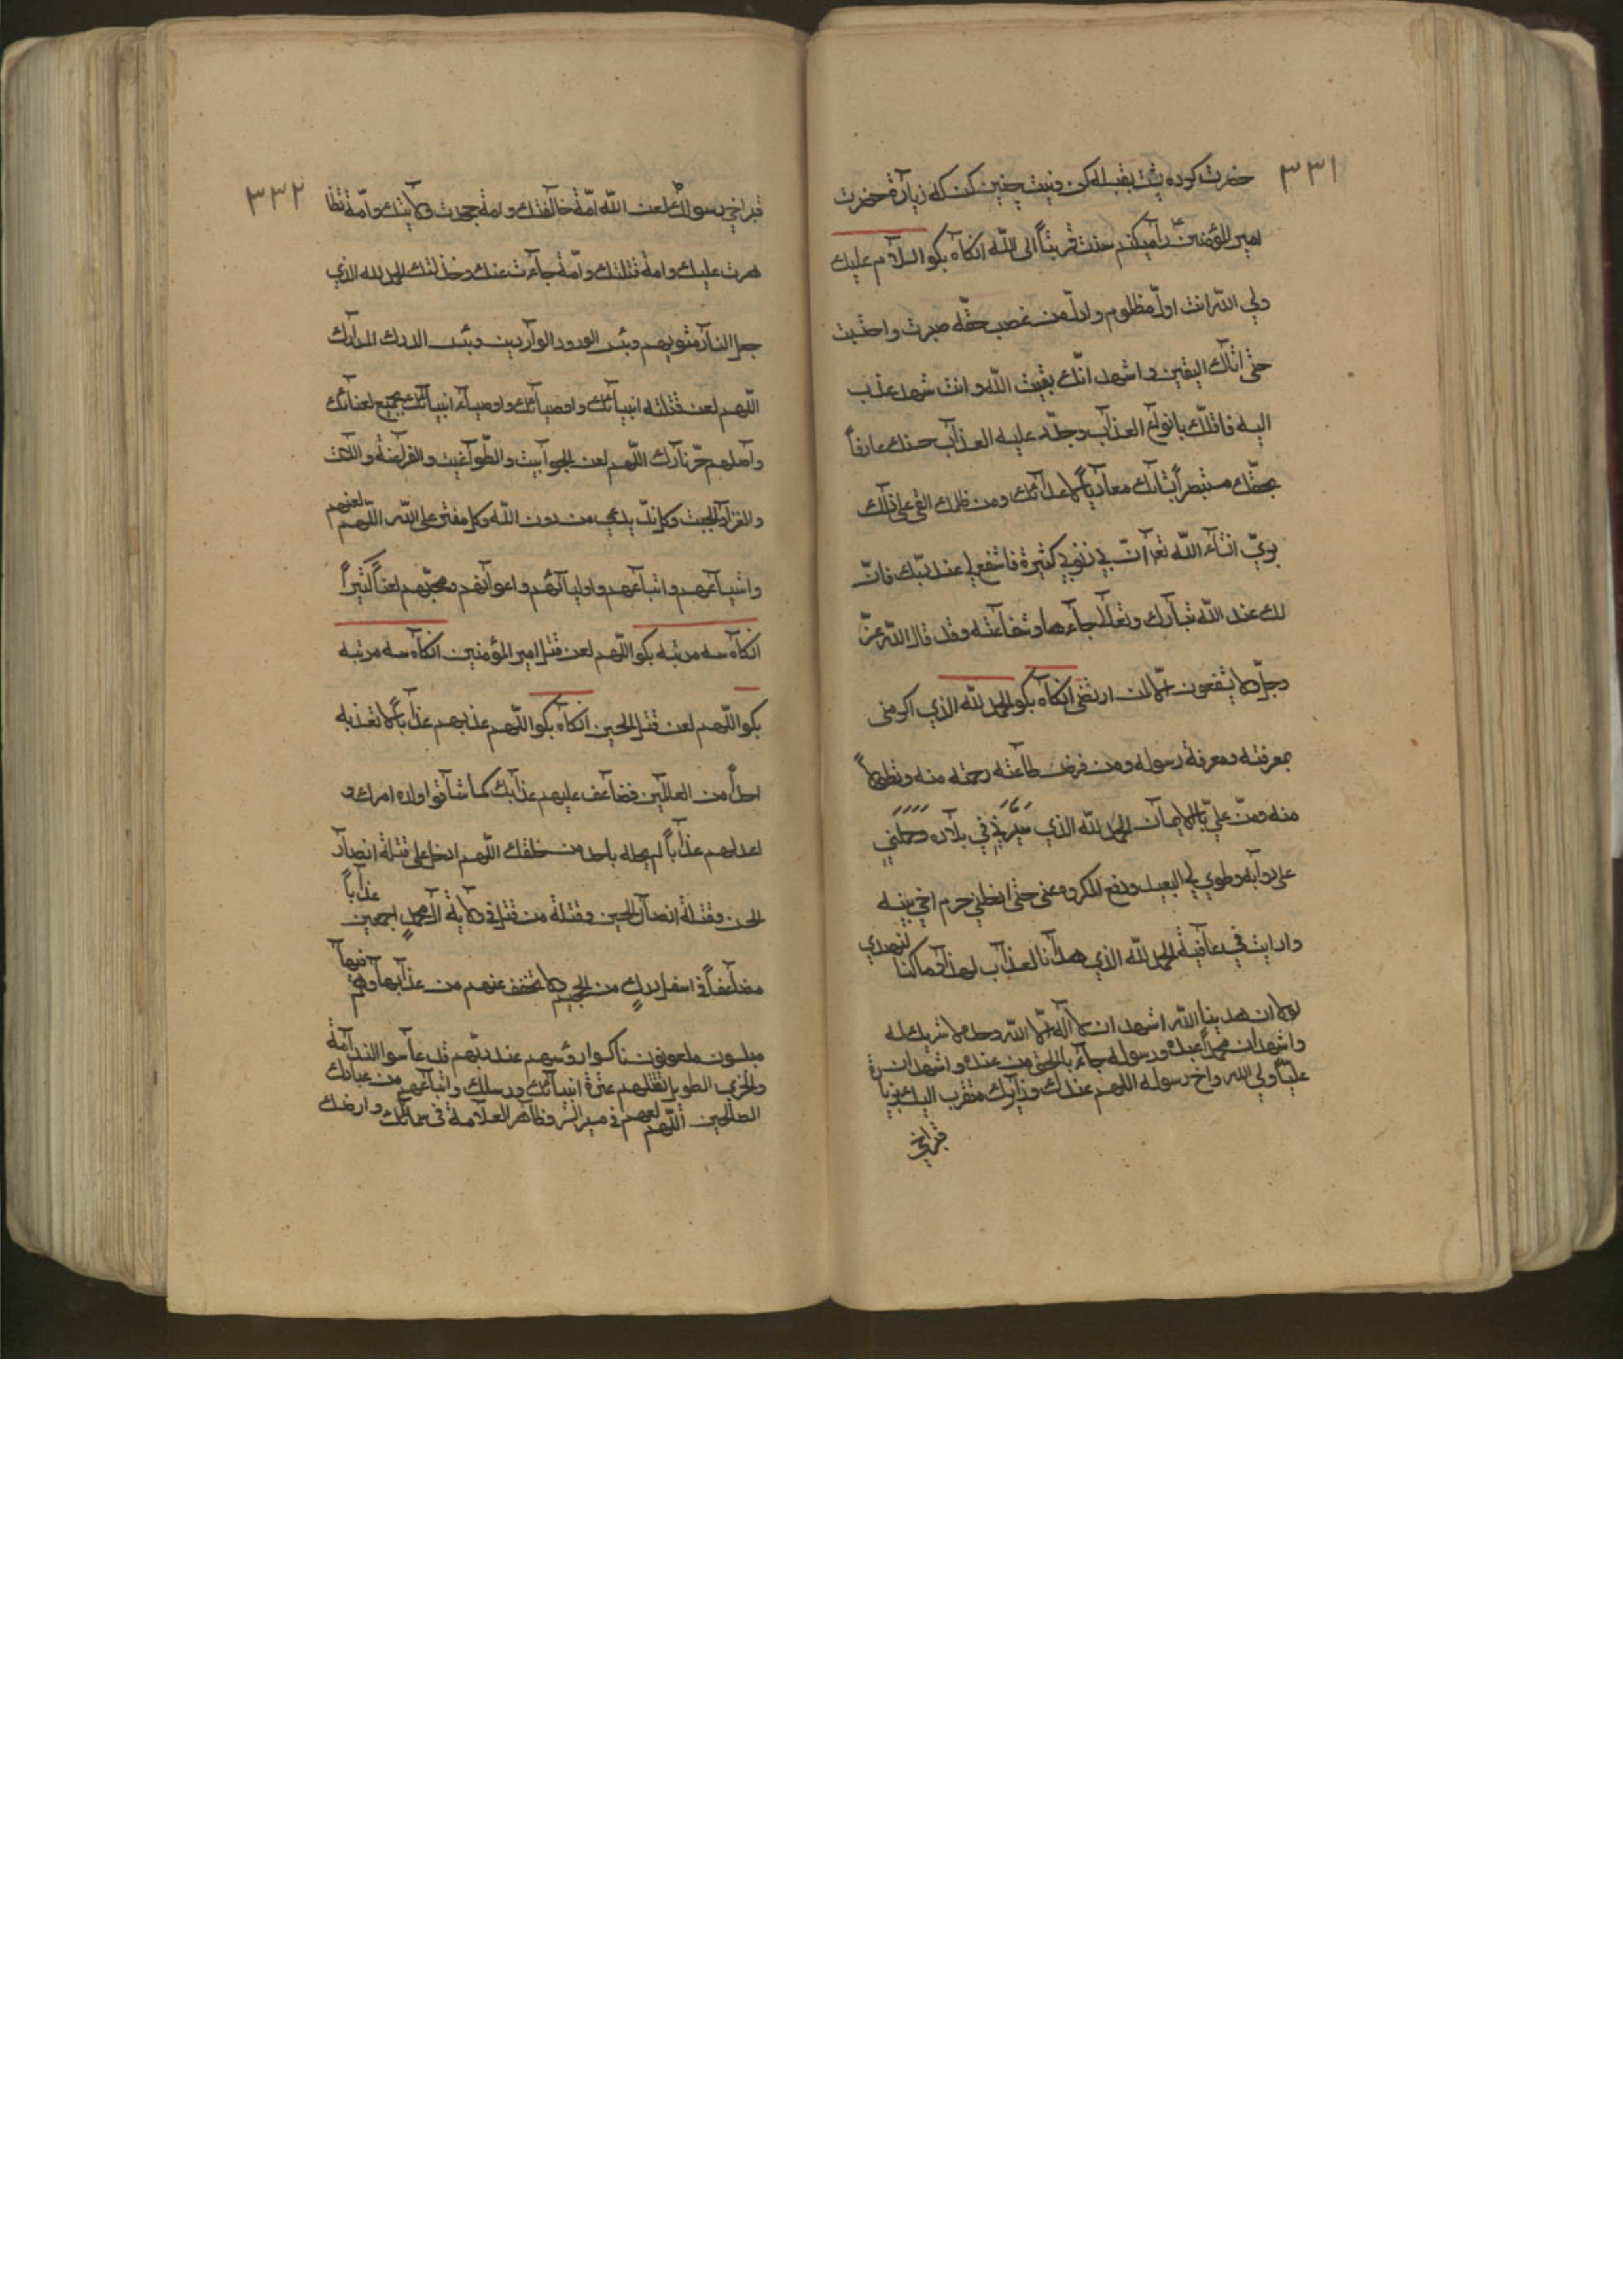 ٣٣١
حضرت كرده پشت بقبله كن و نيت چنين كن كه زيارة حضرت
امير المؤمنين را ميكنم سنت قربتاً الى الله انكاه بكو السلام عليك
ولي الله انت اول مظلوم واول من غصب حقه صبرت واحتسبت
حتى اتاك اليقين واشهد انك لقيت الله وانت شهيد عذب
الله قاتلك بانواع العذاب وجدد عليه العذاب جئتك عارفاً
بحقك مستبصراً بشأنك معادياً لاعدائك ومن ظلمك القى على ذلك
ربي انشاء الله تعم ان لي ذنوبي كثيرة فاشفع لي عند ربك فان
لك عند الله تبارك وتعالى جاءها وشفاعته وقد قال الله عز
وجل ولا يشفعون الا لمن ارتضى انكاه بكو الحمد لله الذي اكرمنى
بمعرفته ومعرفة رسوله ومن فرض طاعته رحمة منه وتطولاً
منه ومن علي بالايمان الحمد لله الذي سيرني في بلاده وحملني
على دوابه وطوي لي البعيد ودفع المكروه عنى حتى ادخلني حرم اخي نبيه
وارانيه في عافية الحمد لله الذي هدانا لهذا وماكنا لنهتدي
لولا ان هدينا الله اشهد ان لا اله الا الله وحده لا شريك له
واشهد ان محمداً عبده ورسوله جاء بالحق من عنده واشهد ان
علياً ولي الله واخ رسوله اللهم عبدك وزايرك متقرب اليك بزيارة
قبر اخي
٣٣٢
قبر اخي رسولك لعن الله امة خالفتك وامة جحدت ولايتك وامة تظا
هرت عليك وامة قتلتك وامة حادت عنك وخذلتك الحمد لله الذي
جعل النار مثويهم وبئس الورود الواردين وبئس الدرك المدرك
اللهم لعن قتلته انبيائك واوصيائك واوصياء انبيائك بجميع لعناتك
واصلهم حر نارك اللهم لعن الجوابيت والطواغيت والفراعنة واللات
والعزى والجبت وكل ند يدعى من دون الله وكل مفتر على الله اللهم لعنهم
واشياعهم واتباعهم واوليائهم واعوانهم ومحبيهم لعناً كثيراً
انكاه سه مرتبه بكو اللهم لعن قتل امير المؤمنين انكاه سه مرتبه
بكو اللهم لعن قتل الحسين انكاه بكو اللهم عذبهم عذاباً لا تعذبه
احداً من العالمين فضاعف عليهم عذابك كما شاقوا ولاه امرك و
اعد لهم عذاباً لم تحله باحد من خلقك اللهم ادخل على قتلة انصار
الحسن وقتلة انصار الحسين وقتلة من قتل في ولاية آل محمد اجمعين عذاباً
مضاعفاً في اسفل درك من الجحيم ولا تخفف عنهم من عذابها وهم فيها
مبلسون ملعونون ناكسوا رؤسهم عند ربهم قد عاسوا الندامة
والخزي الطويل لقتلهم عترة انبيائك ورسلك واتباعهم من عبادك
الصالحين اللهم لعنهم في مسر السر وظاهر العلامة في سمائك وارضك